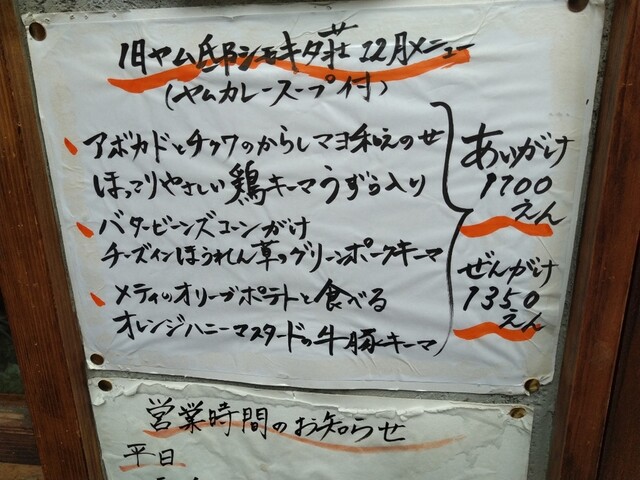 旧ヤム邸シモキタ荘 12月メニュー
(ヤムカレースープ付)
アボカドとチクワのからしマヨ和えのせ
ほってりやさしい鶏キーマうずら入り
バタービーンズコーンがけ
チーズインほうれん草のグリーンポークキーマ
メティのオリーブポテトと食べる
オレンジハニーマスタードの牛豚キーマ
あいがけ
1700
えん
ぜんがけ
1350
えん
営業時間のお知らせ
平日